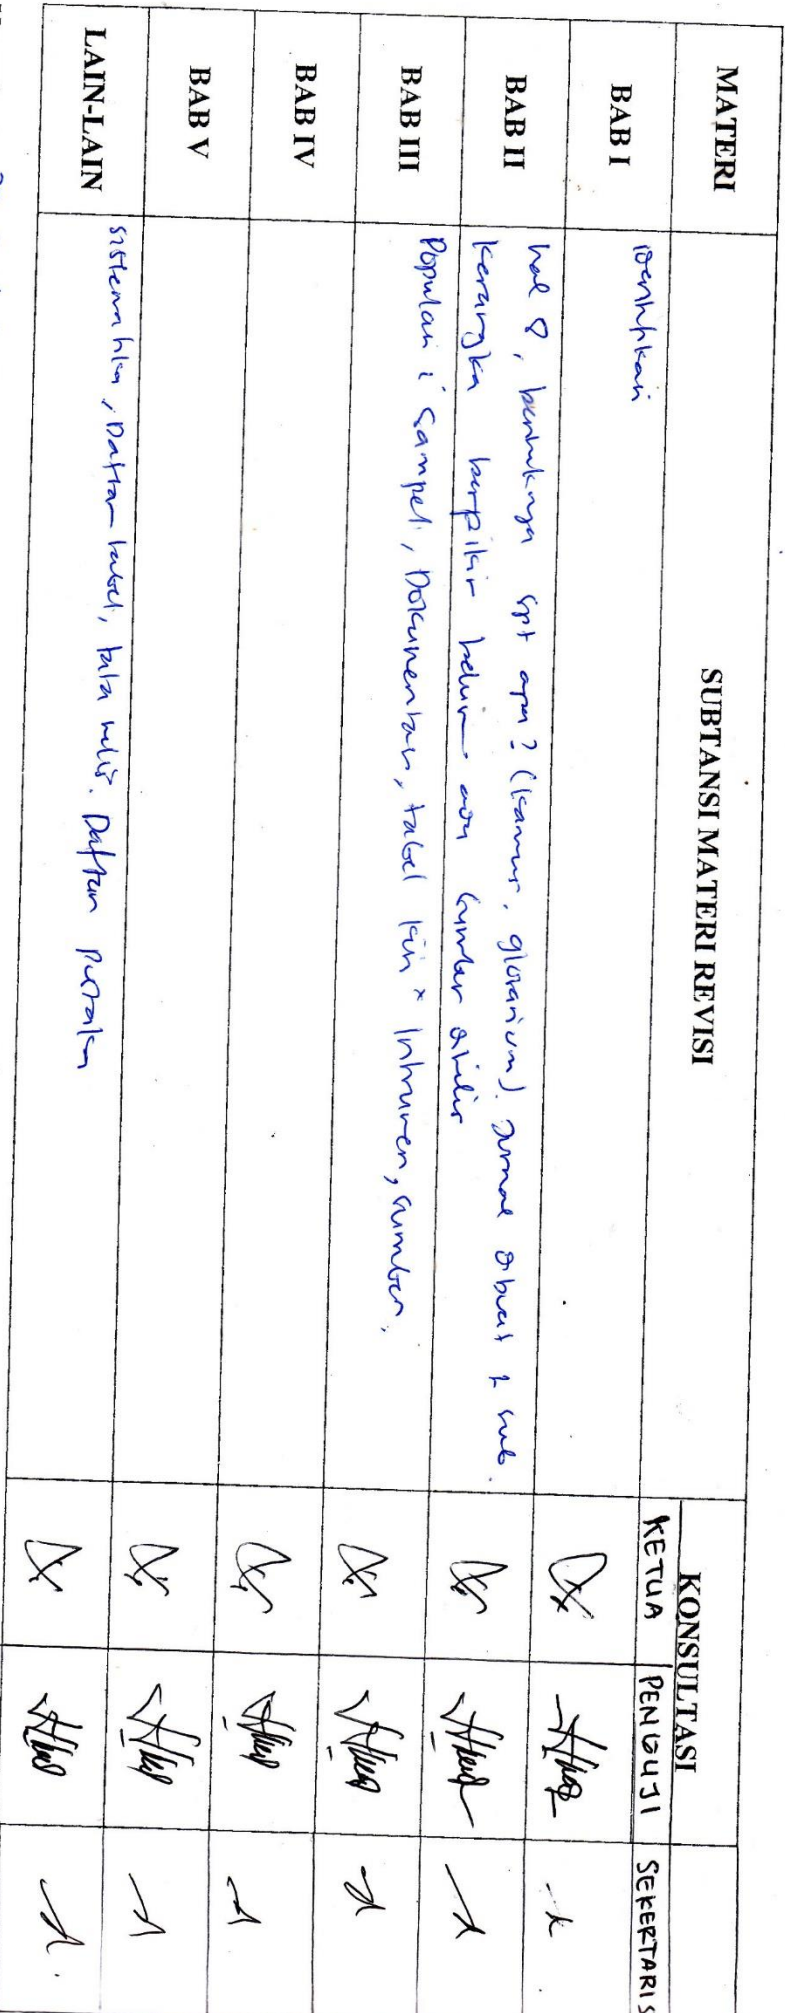 MATERI SUBTANSI MATERI REVISI KONSULTASI
KETUA PENGUJI SEKERTARIS
BAB I identifikasi
BAB II hal 8, bentuknya spt apa? (kamus, glosarium). Jurnal dibuat 2 sub.
kerangka berpikir belum ada sumber ditulis
BAB III Populasi & Sampel, Dokumentasi, tabel kisi" Intrumen, sumber.
BAB IV
BAB V
LAIN-LAIN sistematika, Daftar tabel, tata tulis. Daftar pustaka